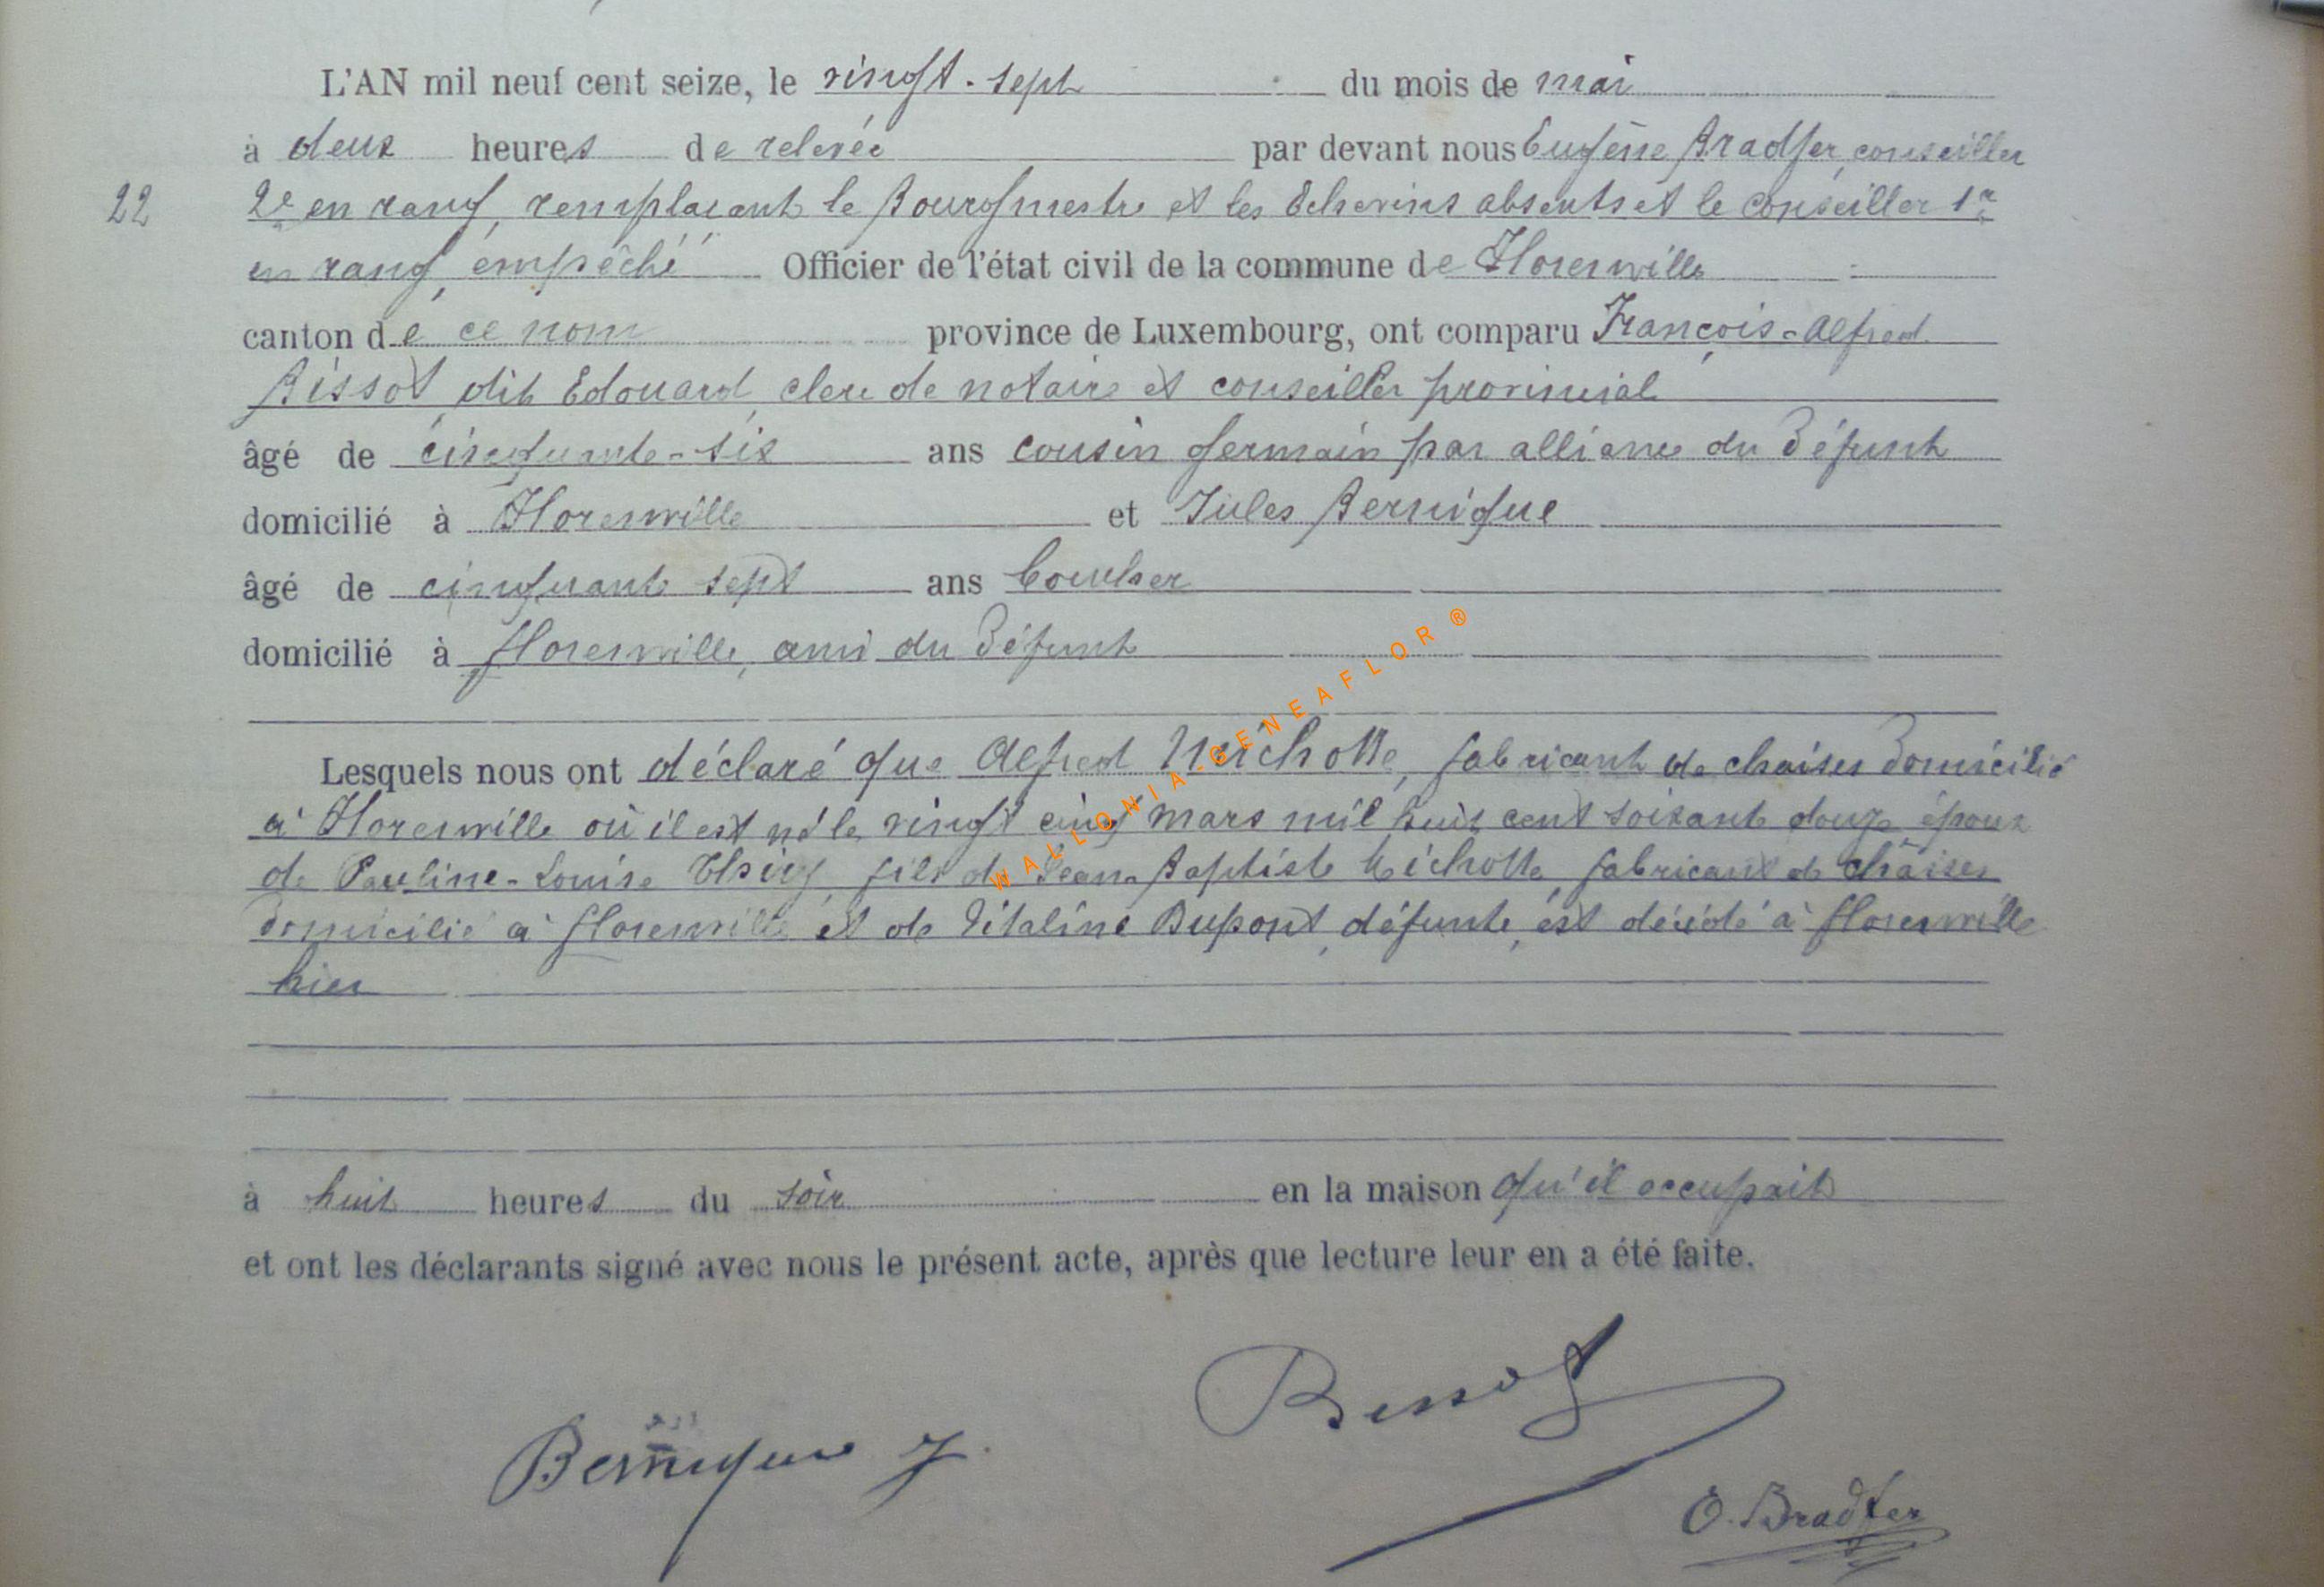 L'AN mil neuf cent seize, le vingt-sept du mois de mai
à deux heures de relevée par devant nous Eugène Bradfer, conseiller
22 2e en rang, remplaçant le Bourgmestre et les Echevins absents et le conseiller 1r
en rang empêché Officier de l'état civil de la commune de Florenville
canton de ce nom province de Luxembourg, ont comparu François-Alfred
Bissot, dit Edouard, clerc de notaire et conseiller provincial
âgé de cinquante-six ans cousin germain par alliance du défunt
domicilié à Florenville et Jules Bernique
âgé de cinquante sept ans boucher
domicilié à Florenville, ami du défunt
Lesquels nous ont déclaré que Alfred Michotte, fabricant de chaises domicilié
à Florenville où il est né le vingt cinq mars mil huit cent soixante douze, époux
de Pauline-Louise fils de Jean-Baptiste Michotte, fabricant de chaises
domicilié à Florenville et de Vitaline Dupont, défunte, est décédé à Florenville
hier
à huit heures du soir en la maison qu'il occupait
et ont les déclarants signé avec nous le présent acte, après que lecture leur en a été faite.
Bissot
Bernique J.
E. Bradfer
WALLONIA-GENEAFLOR ®